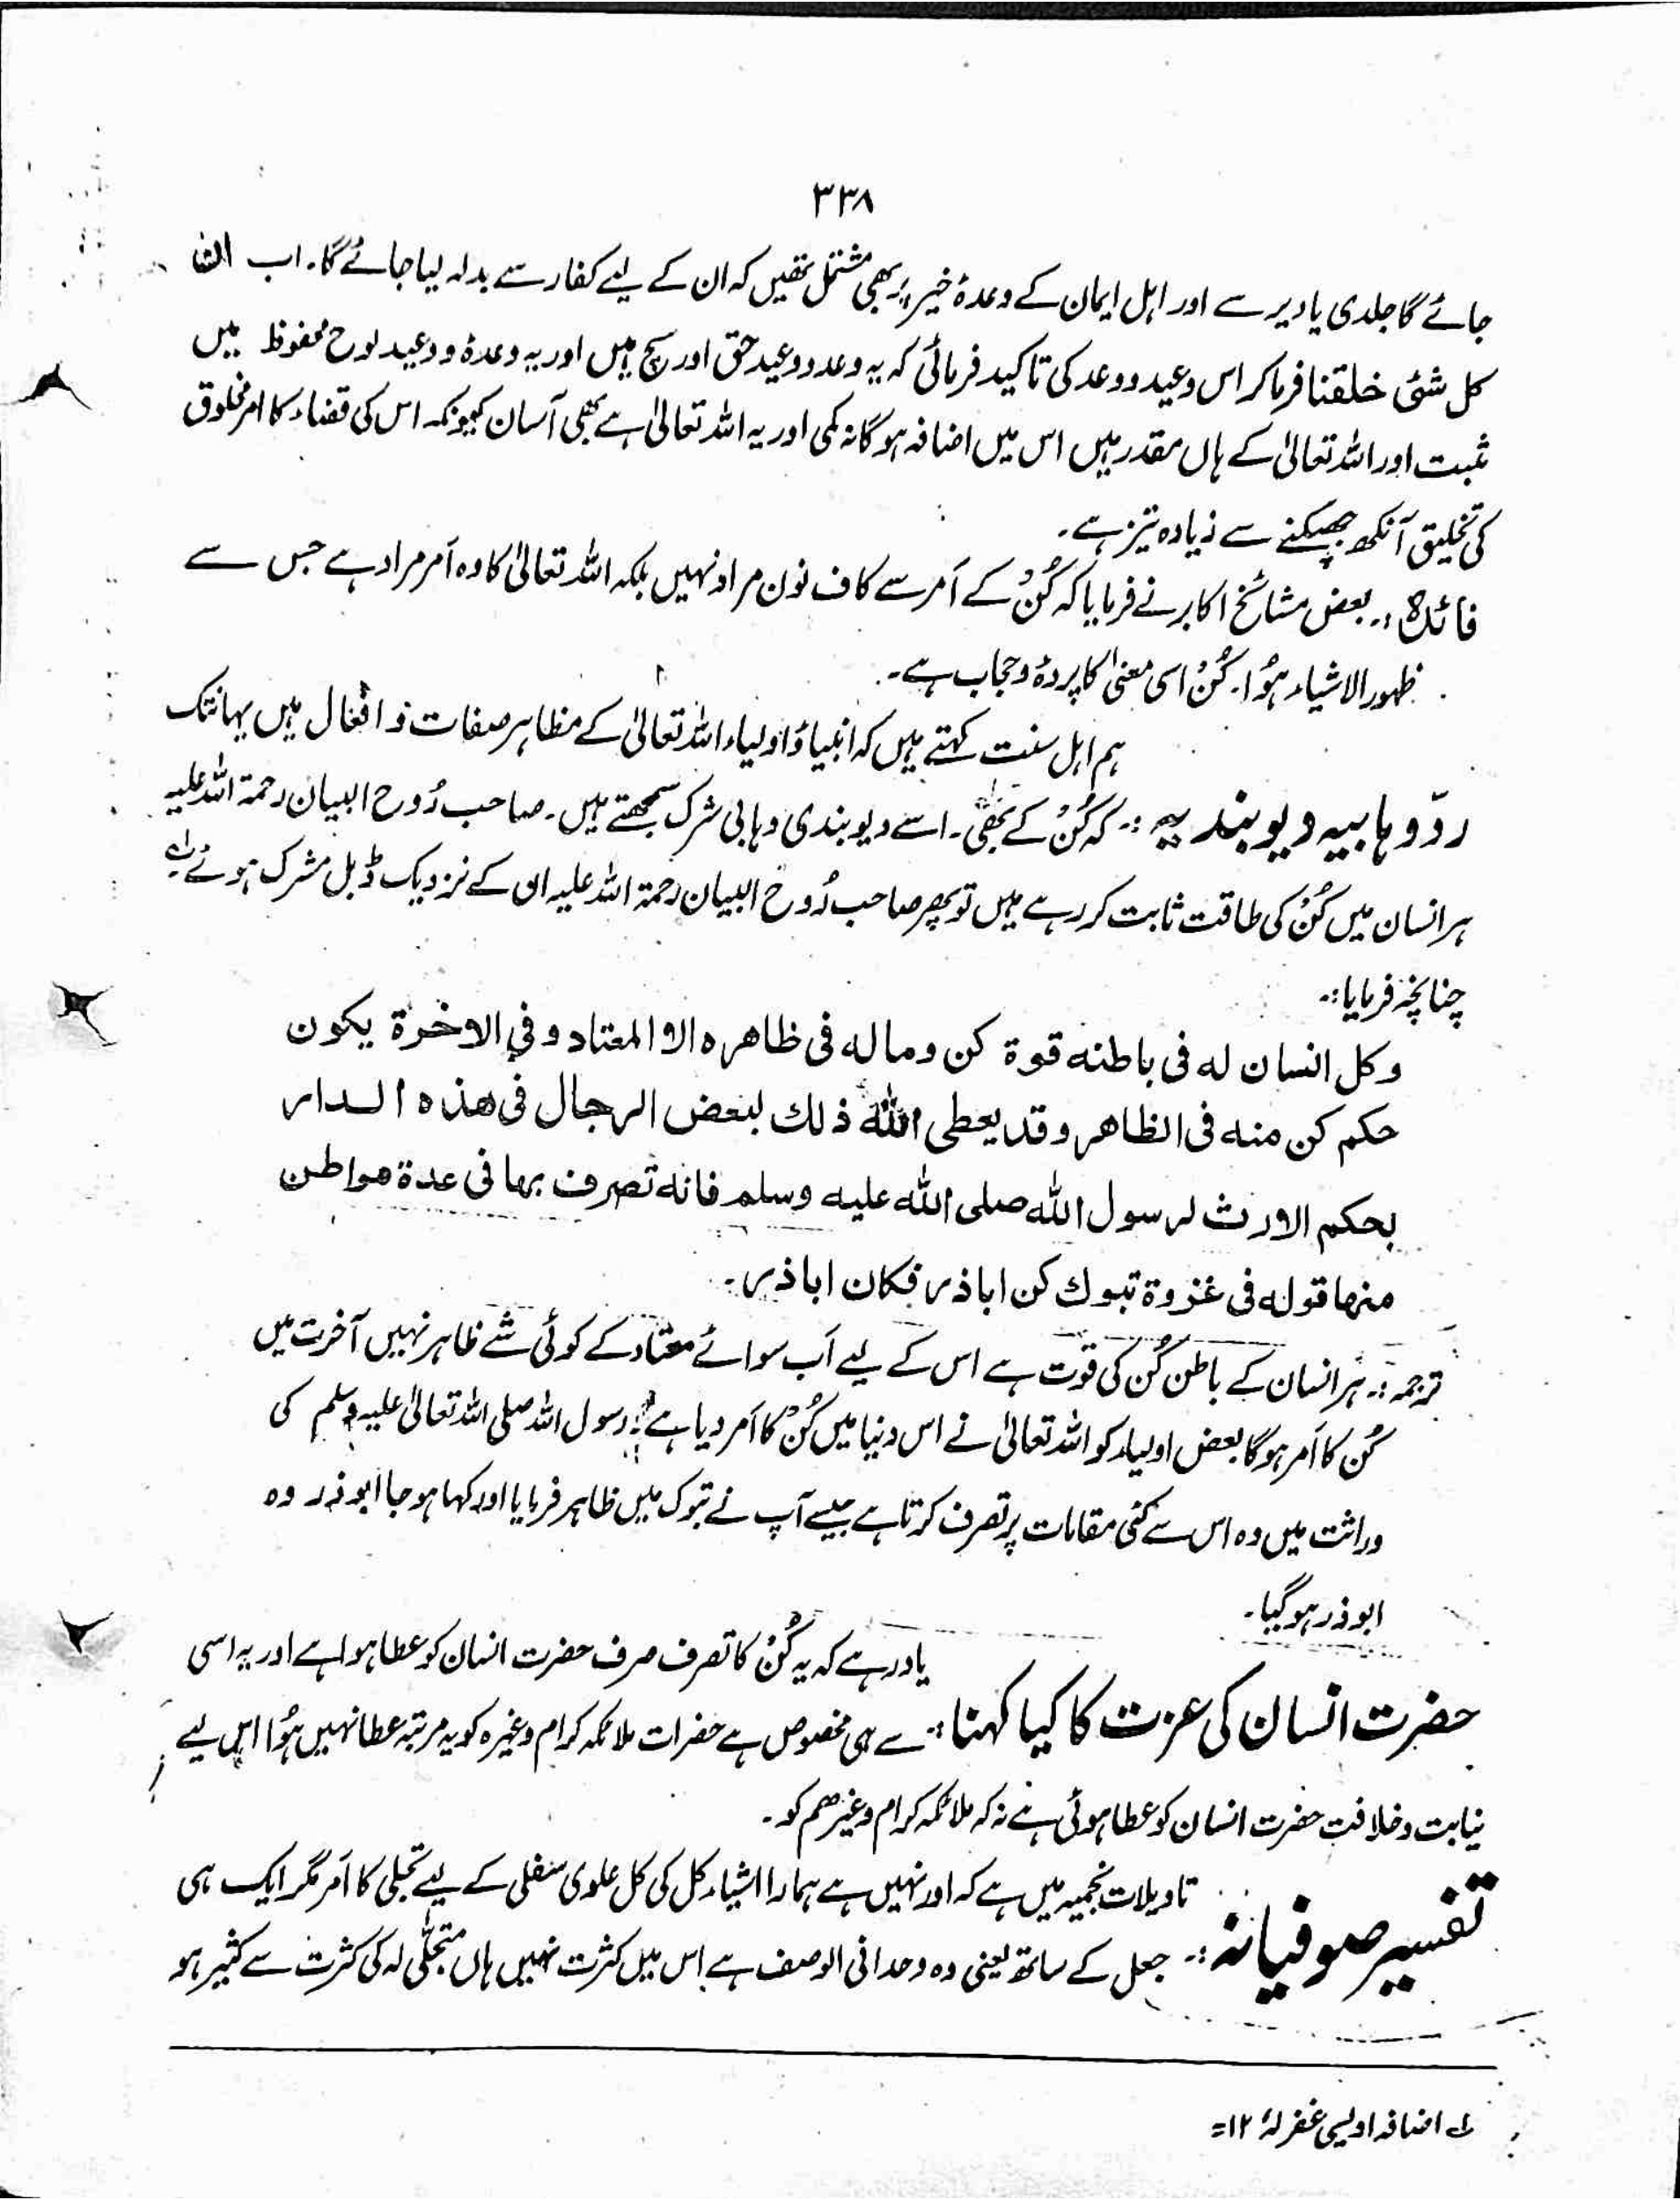 ۳۳۸
جائے گا جلدی یا دیر سے اور اہل ایمان کے وعدۂ خیر پر بھی مشتمل تھیں کہ ان کے لیے کفار سے بدلہ لیا جائے گا۔ اب ان
کل شئ خلقنا فرما کر اس وعید و وعد کی تاکید فرمائی کہ یہ وعد و وعید حق اور سچ ہیں اور یہ وعدہ و وعید لوح محفوظ میں
ثبت اور اللہ تعالیٰ کے ہاں مقدر ہیں اس میں اضافہ ہو گا نہ کمی اور یہ اللہ تعالیٰ ہے بھی آسان کیونکہ اس کی قضاء کا امر مخلوق
کی تخلیق آنکھ جھپکنے سے زیادہ تیز ہے۔
فائدہ :۔ بعض مشائخ اکابر نے فرمایا کہ کُنْ کے اَمر سے کاف نون مراد نہیں بلکہ اللہ تعالیٰ کا وہ اَمر مراد ہے جس سے
ظہور الاشیاء ہُوا۔ کُنْ اسی معنیٰ کا پردہ و حجاب ہے۔
ہم اہل سنت کہتے ہیں کہ انبیاء و اولیاء اللہ تعالیٰ کے مظاہر صفات و افعال ہیں یہانتک
ردّ وہابیہ دیوبندیہ :۔ کہ کُنْ کے بھی۔ اسے دیوبندی وہابی شرک سمجھتے ہیں۔ صاحب رُوح البیان رحمۃ اللہ علیہ
ہر انسان میں کُنْ کی طاقت ثابت کر رہے ہیں تو پھر صاحب رُوح البیان رحمۃ اللہ علیہ ان کے نزدیک ڈبل مشرک ہوئے لہ
چنانچہ فرمایا :۔
وكل انسان له فى باطنه قوة كن وماله فى ظاهره الا المعتاد وفى الاخرة يكون
حكم كن منه فى الظاهر وقد يعطى الله ذلك لبعض الرجال فى هذه الدار
بحكم الارث لرسول الله صلى الله عليه وسلم فانه تصرف بها فى عدة مواطن
منها قوله فى غزوة تبوك كن اباذر فكان اباذر۔
ترجمہ :۔ ہر انسان کے باطن کُن کی قوت ہے اس کے لیے اَب سوائے معتاد کے کوئی شے ظاہر نہیں آخرت میں
کُن کا اَمر ہوگا بعض اولیاء کو اللہ تعالیٰ نے اس دنیا میں کُنْ کا اَمر دیا ہے رسول اللہ صلی اللہ تعالیٰ علیہ وسلم کی
وراثت میں وہ اس سے کئی مقامات پر تصرف کرتا ہے جیسے آپ نے تبوک میں ظاہر فرمایا اور کہا ہو جا ابوذر وہ
ابوذر ہو گیا۔
یاد رہے کہ یہ کُنْ کا تصرف صرف حضرت انسان کو عطا ہوا ہے اور یہ اسی
حضرت انسان کی عزت کا کیا کہنا :۔ سے ہی مخصوص ہے حضرات ملائکہ کرام وغیرہ کو یہ مرتبہ عطا نہیں ہُوا اس لیے
نیابت و خلافت حضرت انسان کو عطا ہوئی ہے نہ کہ ملائکہ کرام وغیرھم کو۔
تاویلات نجمیہ میں ہے کہ اور نہیں ہے ہمارا اشیاء کل کی کل علوی سفلی کے لیے تجلی کا اَمر مگر ایک ہی
تفسیر صوفیانہ :۔ جعل کے ساتھ یعنی وہ وحدانی الوصف ہے اس میں کثرت نہیں ہاں متجلّٰی لہ کی کثرت سے کثیر ہو
لہ اضافہ اویسی غفرلہٗ ۱۲=